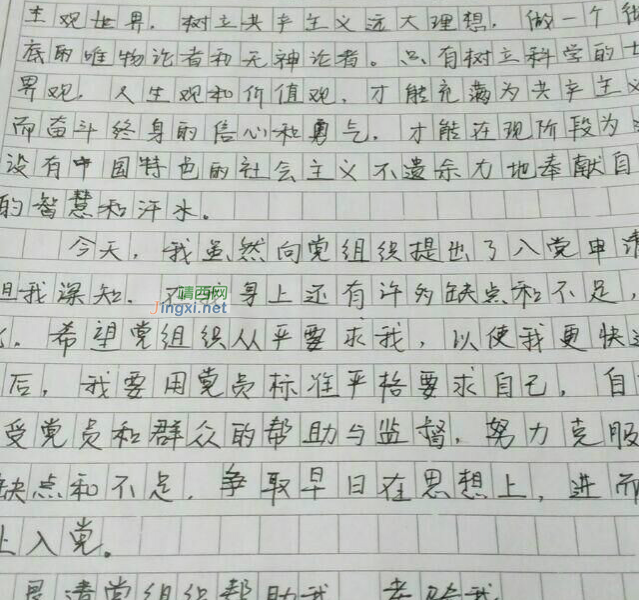 主观世界，树立共产主义远大理想，做一个彻
底的唯物论者和无神论者。只有树立科学的世
界观、人生观和价值观，才能充满为共产主义
而奋斗终身的信心和勇气，才能在现阶段为
设有中国特色的社会主义不遗余力地奉献自
的智慧和汗水。
今天，我虽然向党组织提出了入党申请
但我深知，在我身上还有许多缺点和不足，
靖西网
Jingxi.net
，希望党组织从严要求我，以使我更快进
后，我要用党员标准严格要求自己，自
受党员和群众的帮助与监督，努力克服
缺点和不足，争取早日在思想上，进而
上入党。
是请党组织帮助我、考验我